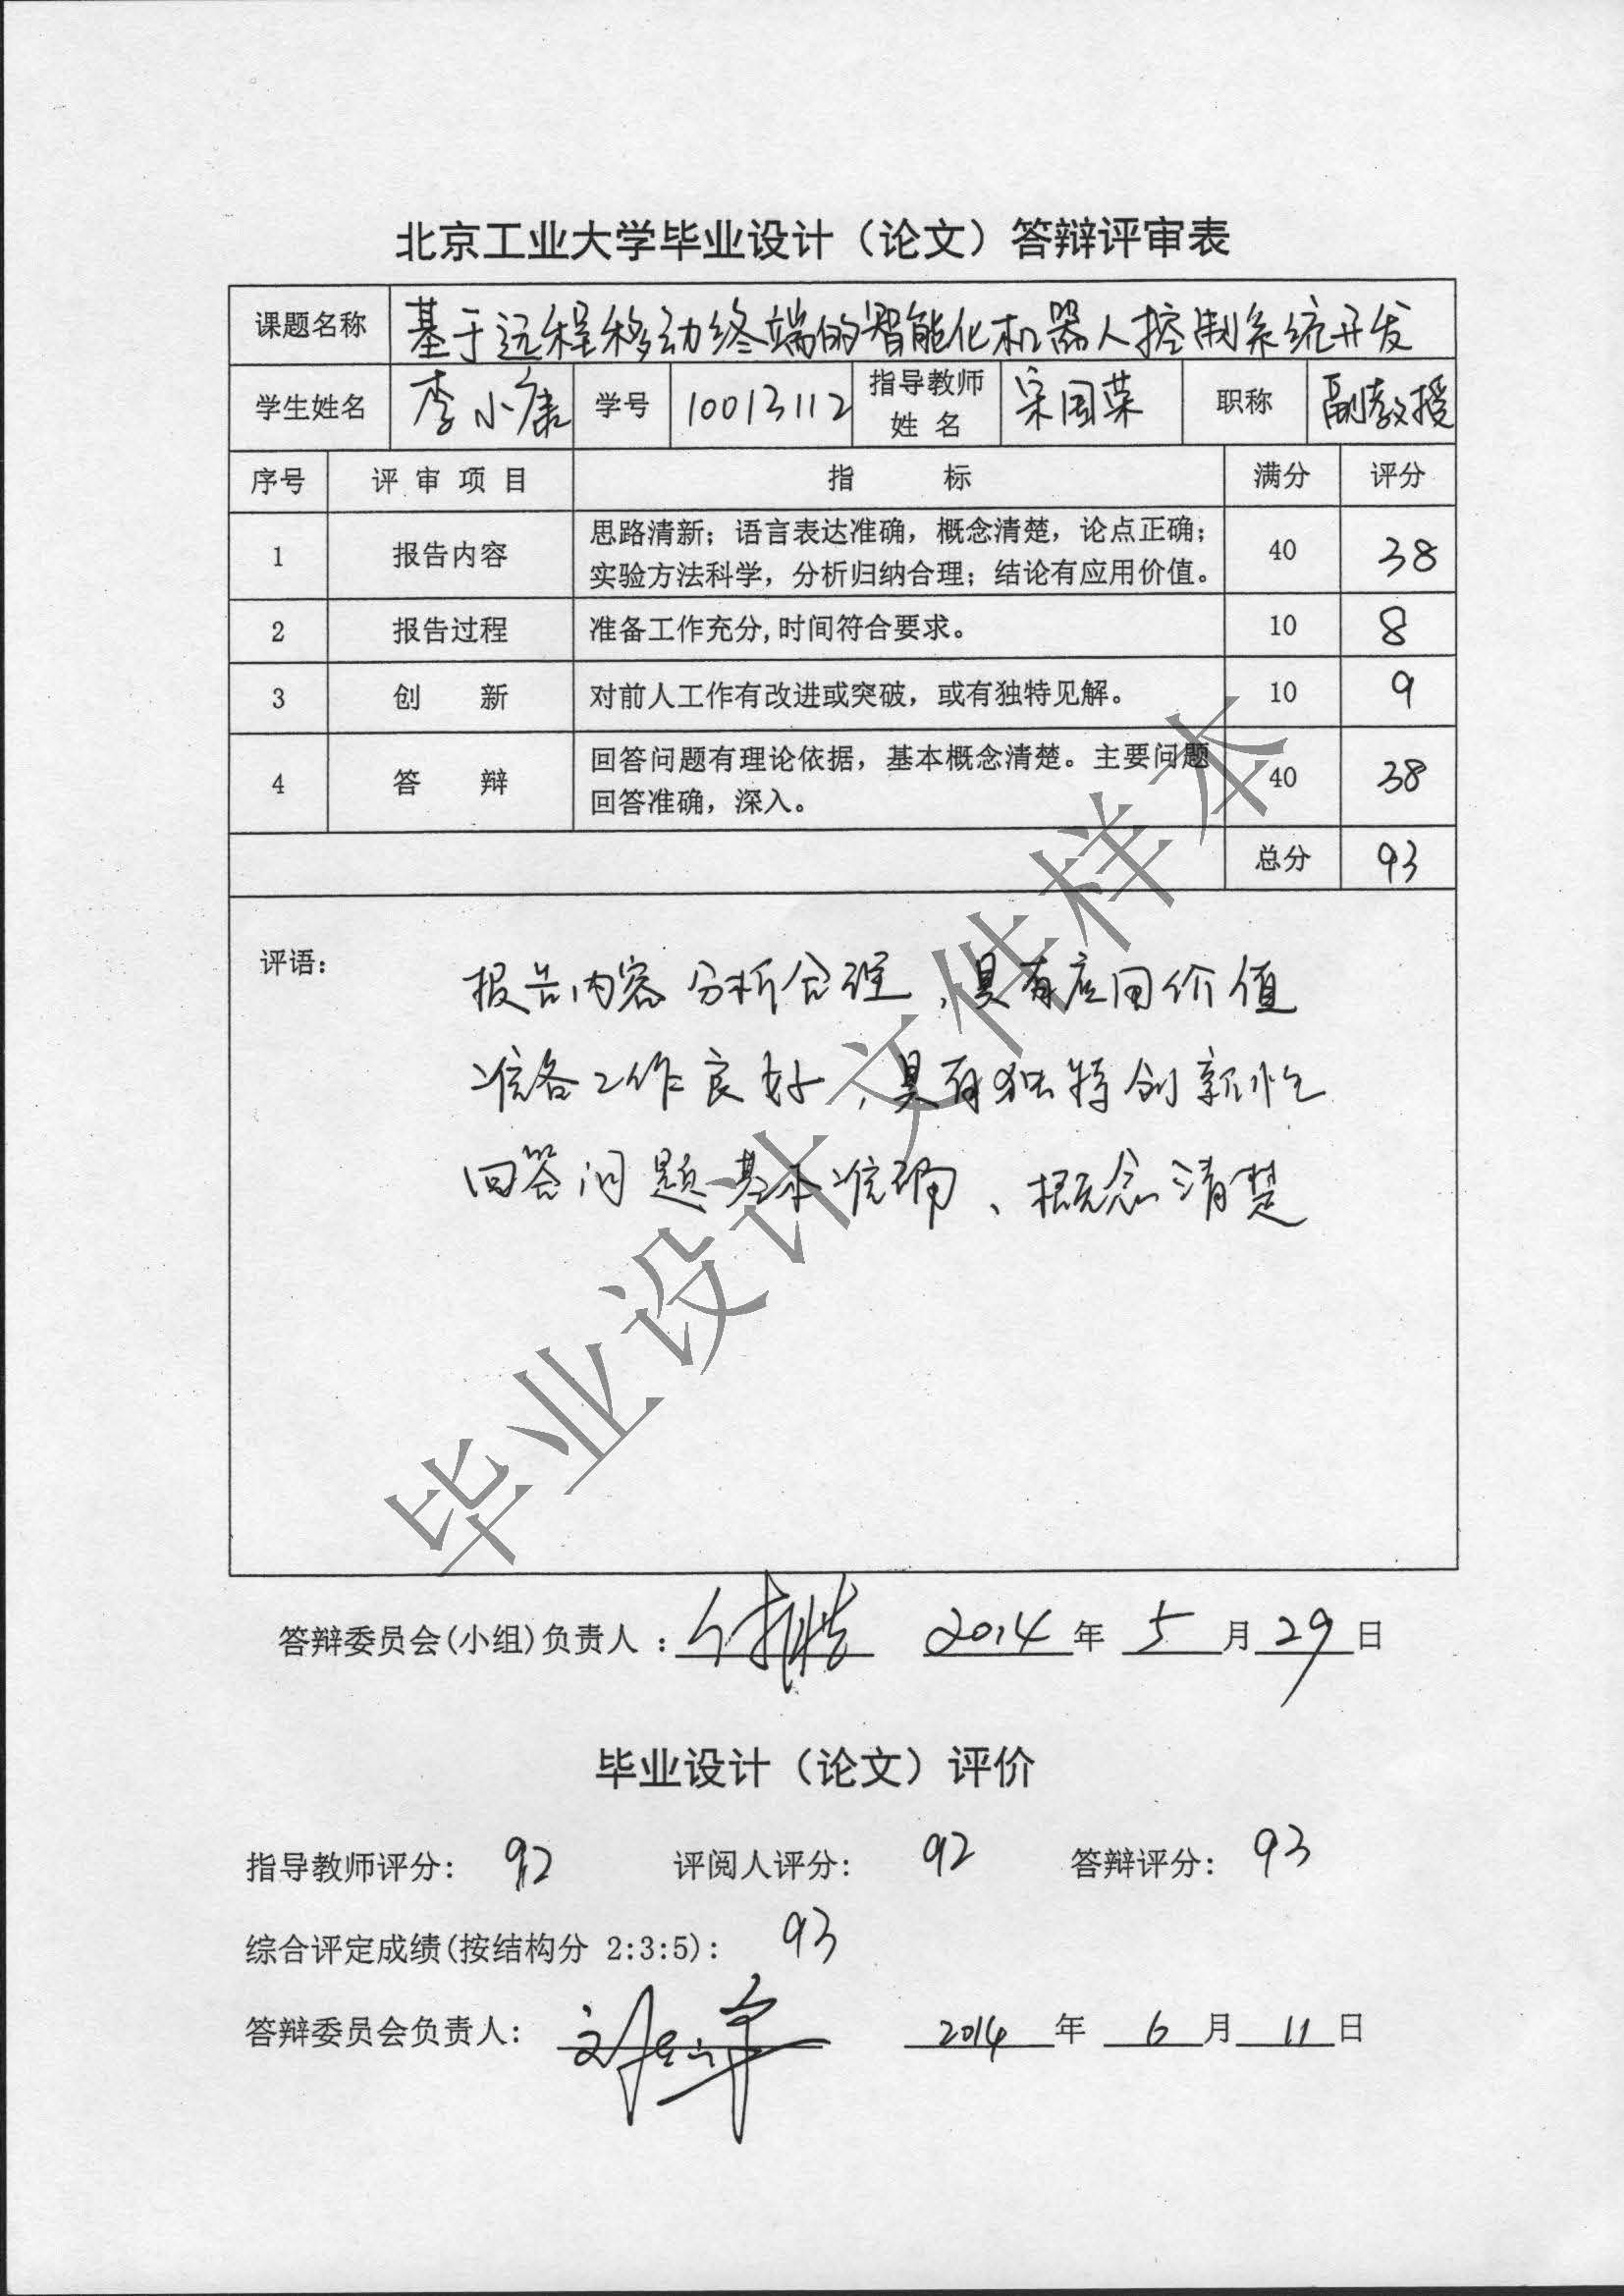 北京工业大学毕业设计（论文）答辩评审表
课题名称 基于远程移动终端的智能化机器人控制系统开发
学生姓名 李小康 学号 10013112 指导教师姓名 宋国荣 职称 副教授
序号 评审项目 指标 满分 评分
1 报告内容 思路清新；语言表达准确，概念清楚，论点正确； 40 38
实验方法科学，分析归纳合理；结论有应用价值。
2 报告过程 准备工作充分,时间符合要求。 10 8
3 创新 对前人工作有改进或突破，或有独特见解。 10 9
4 答辩 回答问题有理论依据，基本概念清楚。主要问题 40 38
回答准确，深入。
总分 93
评语：
报告内容分析合理，具有应用价值
准备工作良好，具有独特创新性
回答问题基本准确、概念清楚
毕业设计文件样本
答辩委员会(小组)负责人： 2014年5月29日
毕业设计（论文）评价
指导教师评分: 92 评阅人评分: 92 答辩评分: 93
综合评定成绩(按结构分 2:3:5): 93
答辩委员会负责人: 2014年6月11日